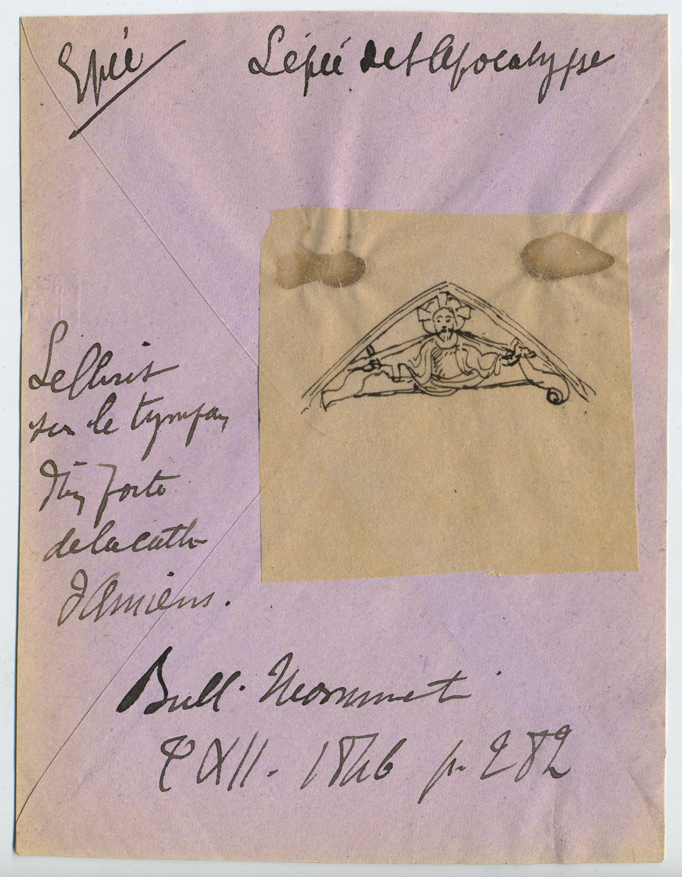 Epée
L'épée de l'Apocalypse
Le Christ
sur le tympan
d'un porte
de la cath
d'Amiens.
Bull. Monument
T XII. 1846 p. 282